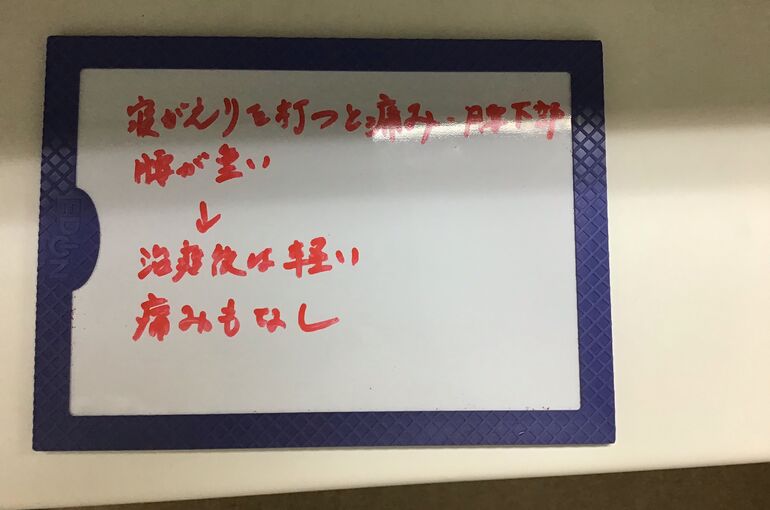 寝がえりを打つと痛み・腰下部
腰が重い
↓
治療後は軽い
痛みもなし
EDION